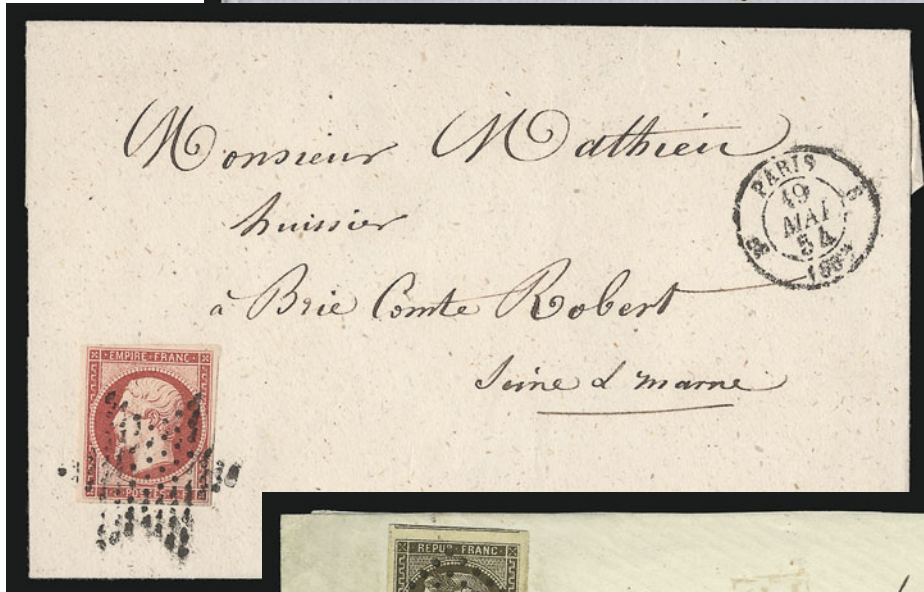 Monsieur Mathieu
huissier
à Brie Comte Robert
Seine & marne
PARIS
19
MAI
54
EMPIRE · FRANC
POSTES
REPUB · FRANC